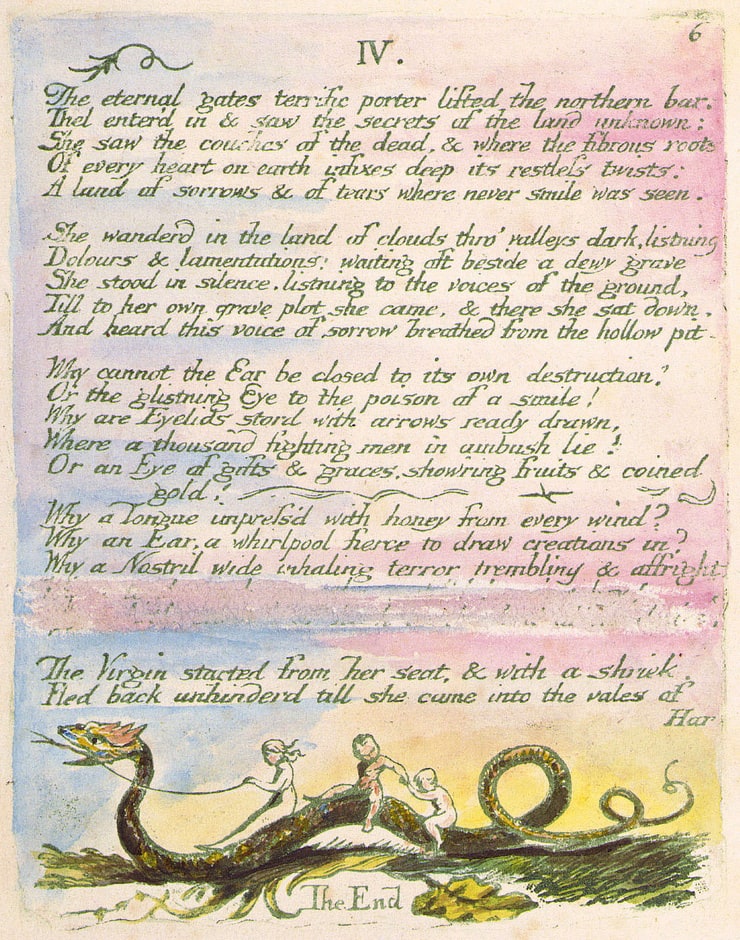 6
IV.
The eternal gates terrific porter lifted the northern bar.
Thel enter'd in & saw the secrets of the land unknown:
She saw the couches of the dead, & where the fibrous roots
Of every heart on earth infixes deep its restless twists:
A land of sorrows & of tears where never smile was seen.
She wanderd in the land of clouds thro' valleys dark, listning
Dolours & lamentations: waiting oft beside a dewy grave
She stood in silence. listning to the voices of the ground,
Till to her own grave plot she came, & there she sat down.
And heard this voice of sorrow breathed from the hollow pit.
Why cannot the Ear be closed to its own destruction?
Or the glistning Eye to the poison of a smile!
Why are Eyelids stord with arrows ready drawn,
Where a thousand fighting men in ambush lie!
Or an Eye of gifts & graces, showring fruits & coined
gold!
Why a Tongue impress'd with honey from every wind?
Why an Ear, a whirlpool fierce to draw creations in?
Why a Nostril wide inhaling terror trembling & affright
The Virgin started from her seat, & with a shriek.
Fled back unhinderd till she came into the vales of
Har
The End